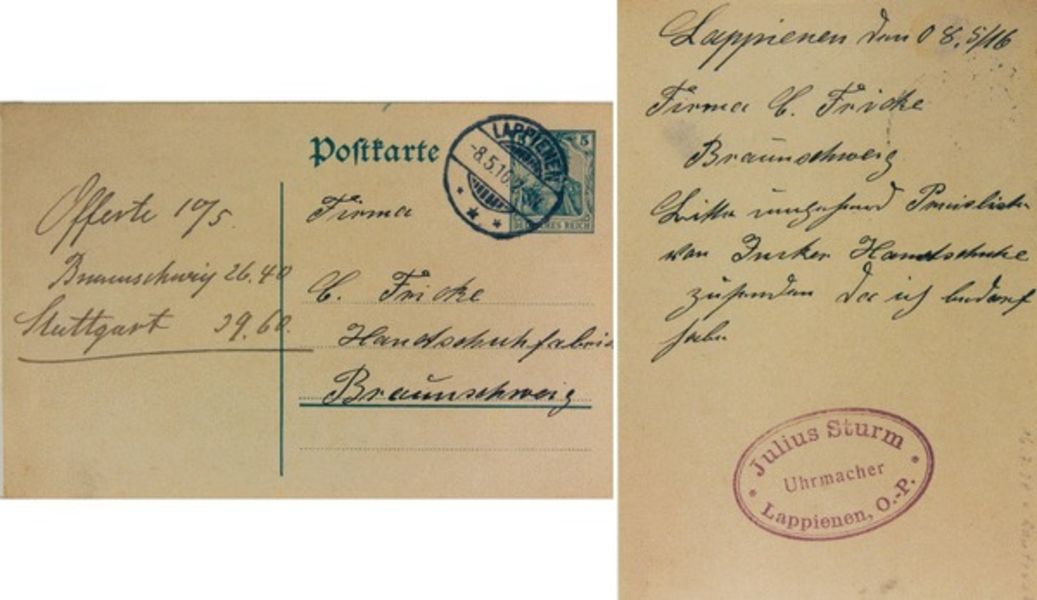 Postkarte
LAPPIENEN
-8.5.16
5
DEUTSCHES REICH
Offerte 10/5.
Braunschweig 26.40
Stuttgart 39.60
Firma
C. Fricke
Handschuhfabrik
Braunschweig
Lappienen den 08.5/16
Firma C. Fricke
Braunschweig
Bitte umgehend Preisliste
von Handschuhe
zusenden da ich bedarf
habe
Julius Sturm
Uhrmacher
Lappienen, O.-P.